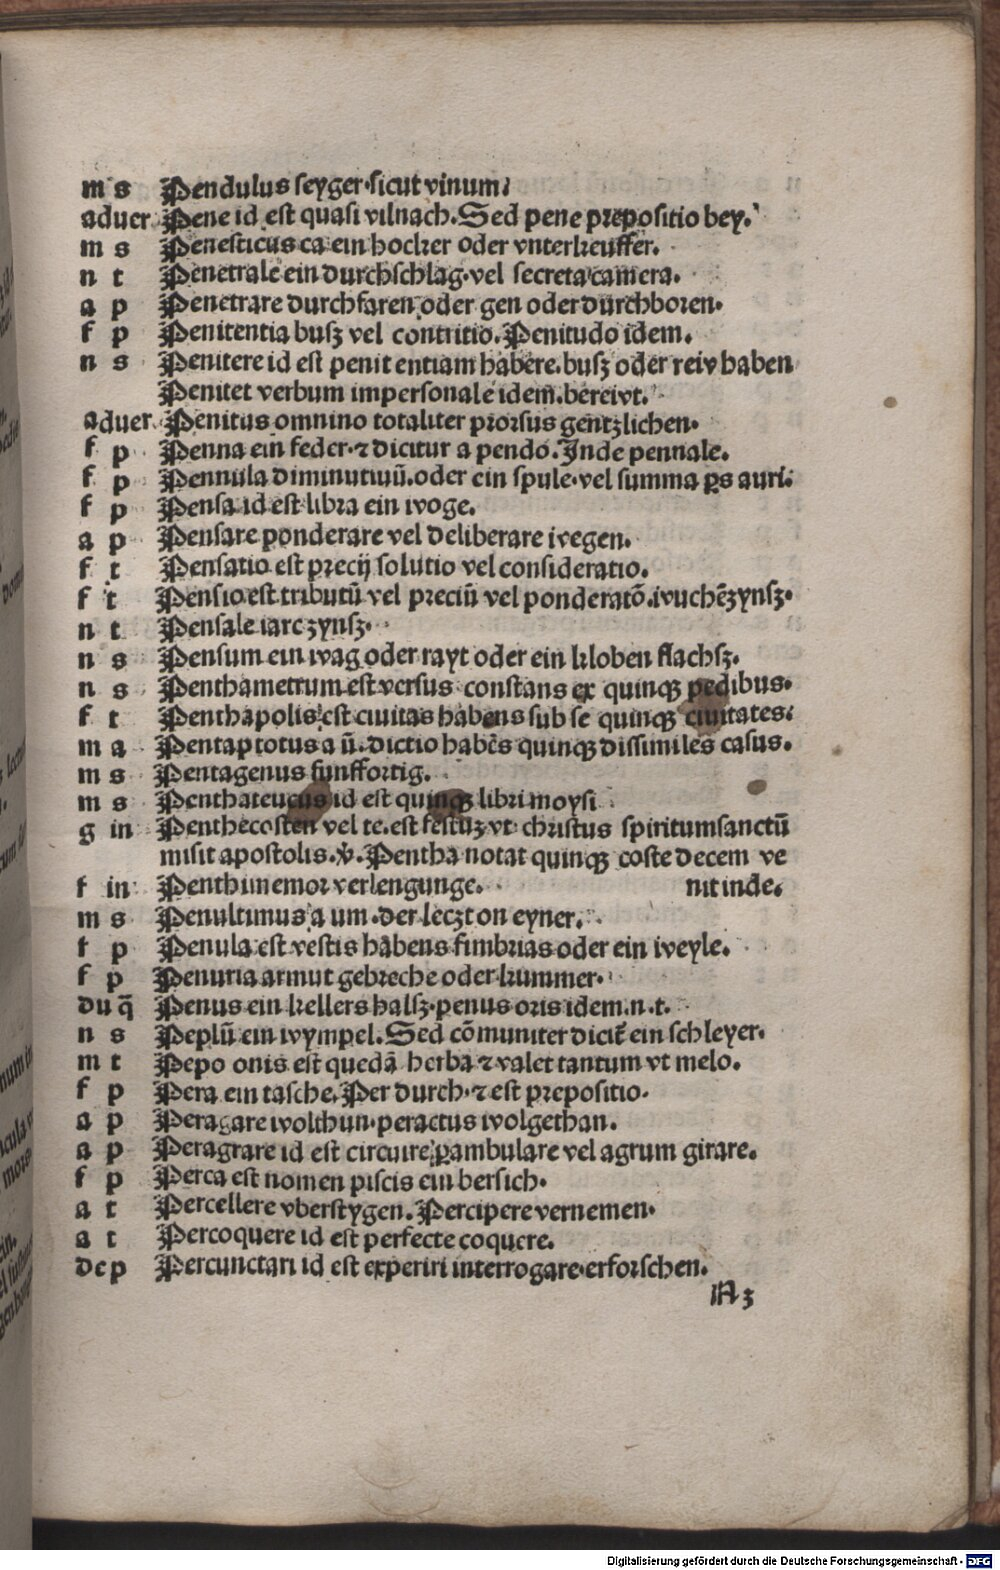 m s Pendulus seyger. sicut vinum.
aduer Pene id est quasi vilnach. Sed pene prepositio bey.
m s Penesticus ca ein hocker oder vnterkeuffer.
n t Penetrale ein durchschlag. vel secreta camera.
a p Penetrare durchfaren oder gen oder durchboren.
f p Penitentia busz vel contritio. Penitudo idem.
n s Penitere id est penit entiam habere. busz oder reiv haben
Penitet verbum impersonale idem. bereivt.
aduer Penitus omnino totaliter prorsus gentzlichen.
f p Penna ein feder. ⁊ dicitur a pendo. Inde pennale.
f p Pennula diminutiuū. oder ein spule. vel summa ꝑs auri.
f p Pensa id est libra ein woge.
a p Pensare ponderare vel deliberare wegen.
f t Pensatio est precij solutio vel consideratio.
f t Pensio est tributū vel preciū vel ponderatō. wuchēzynsz.
n t Pensale iarczynsz.
n s Pensum ein wag oder rayt oder ein kloben flachsz.
n s Penthametrum est versus constans ex quinqꝫ pedibus.
f t Penthapolis est ciuitas habens sub se quinqꝫ ciuitates.
m a Pentaptotus a ū. dictio habēs quinqꝫ dissimiles casus.
m s Pentagenus funffortig.
m s Penthateucus id est quinqꝫ libri moysi
g in Penthecosten vel te. est festuꝫ vt christus spiritumsanctū
misit apostolis. ꝟ. Pentha notat quinqꝫ coste decem ve
f in Penthimemor verlengunge. nit inde.
m s Penultimus a um. der leczt on eyner.
f p Penula est vestis habens fimbrias oder ein weyle.
f p Penuria armut gebreche oder kummer.
du q̄ Penus ein kellers halsz. penus oris idem. n. t.
n s Peplū ein wympel. Sed cōmuniter dicit̄ ein schleyer.
m t Pepo onis est quedā herba ⁊ valet tantum vt melo.
f p Pera ein tasche. Per durch. ⁊ est prepositio.
a p Peragare wolthun. peractus wolgethan.
a p Peragrare id est circuire ꝑambulare vel agrum girare.
f p Perca est nomen piscis ein bersich.
a t Percellere vberstygen. Percipere vernemen.
a t Percoquere id est perfecte coquere.
dep Percunctari id est experiri interrogare. erforschen.
A 3
Digitalisierung gefördert durch die Deutsche Forschungsgemeinschaft - DFG